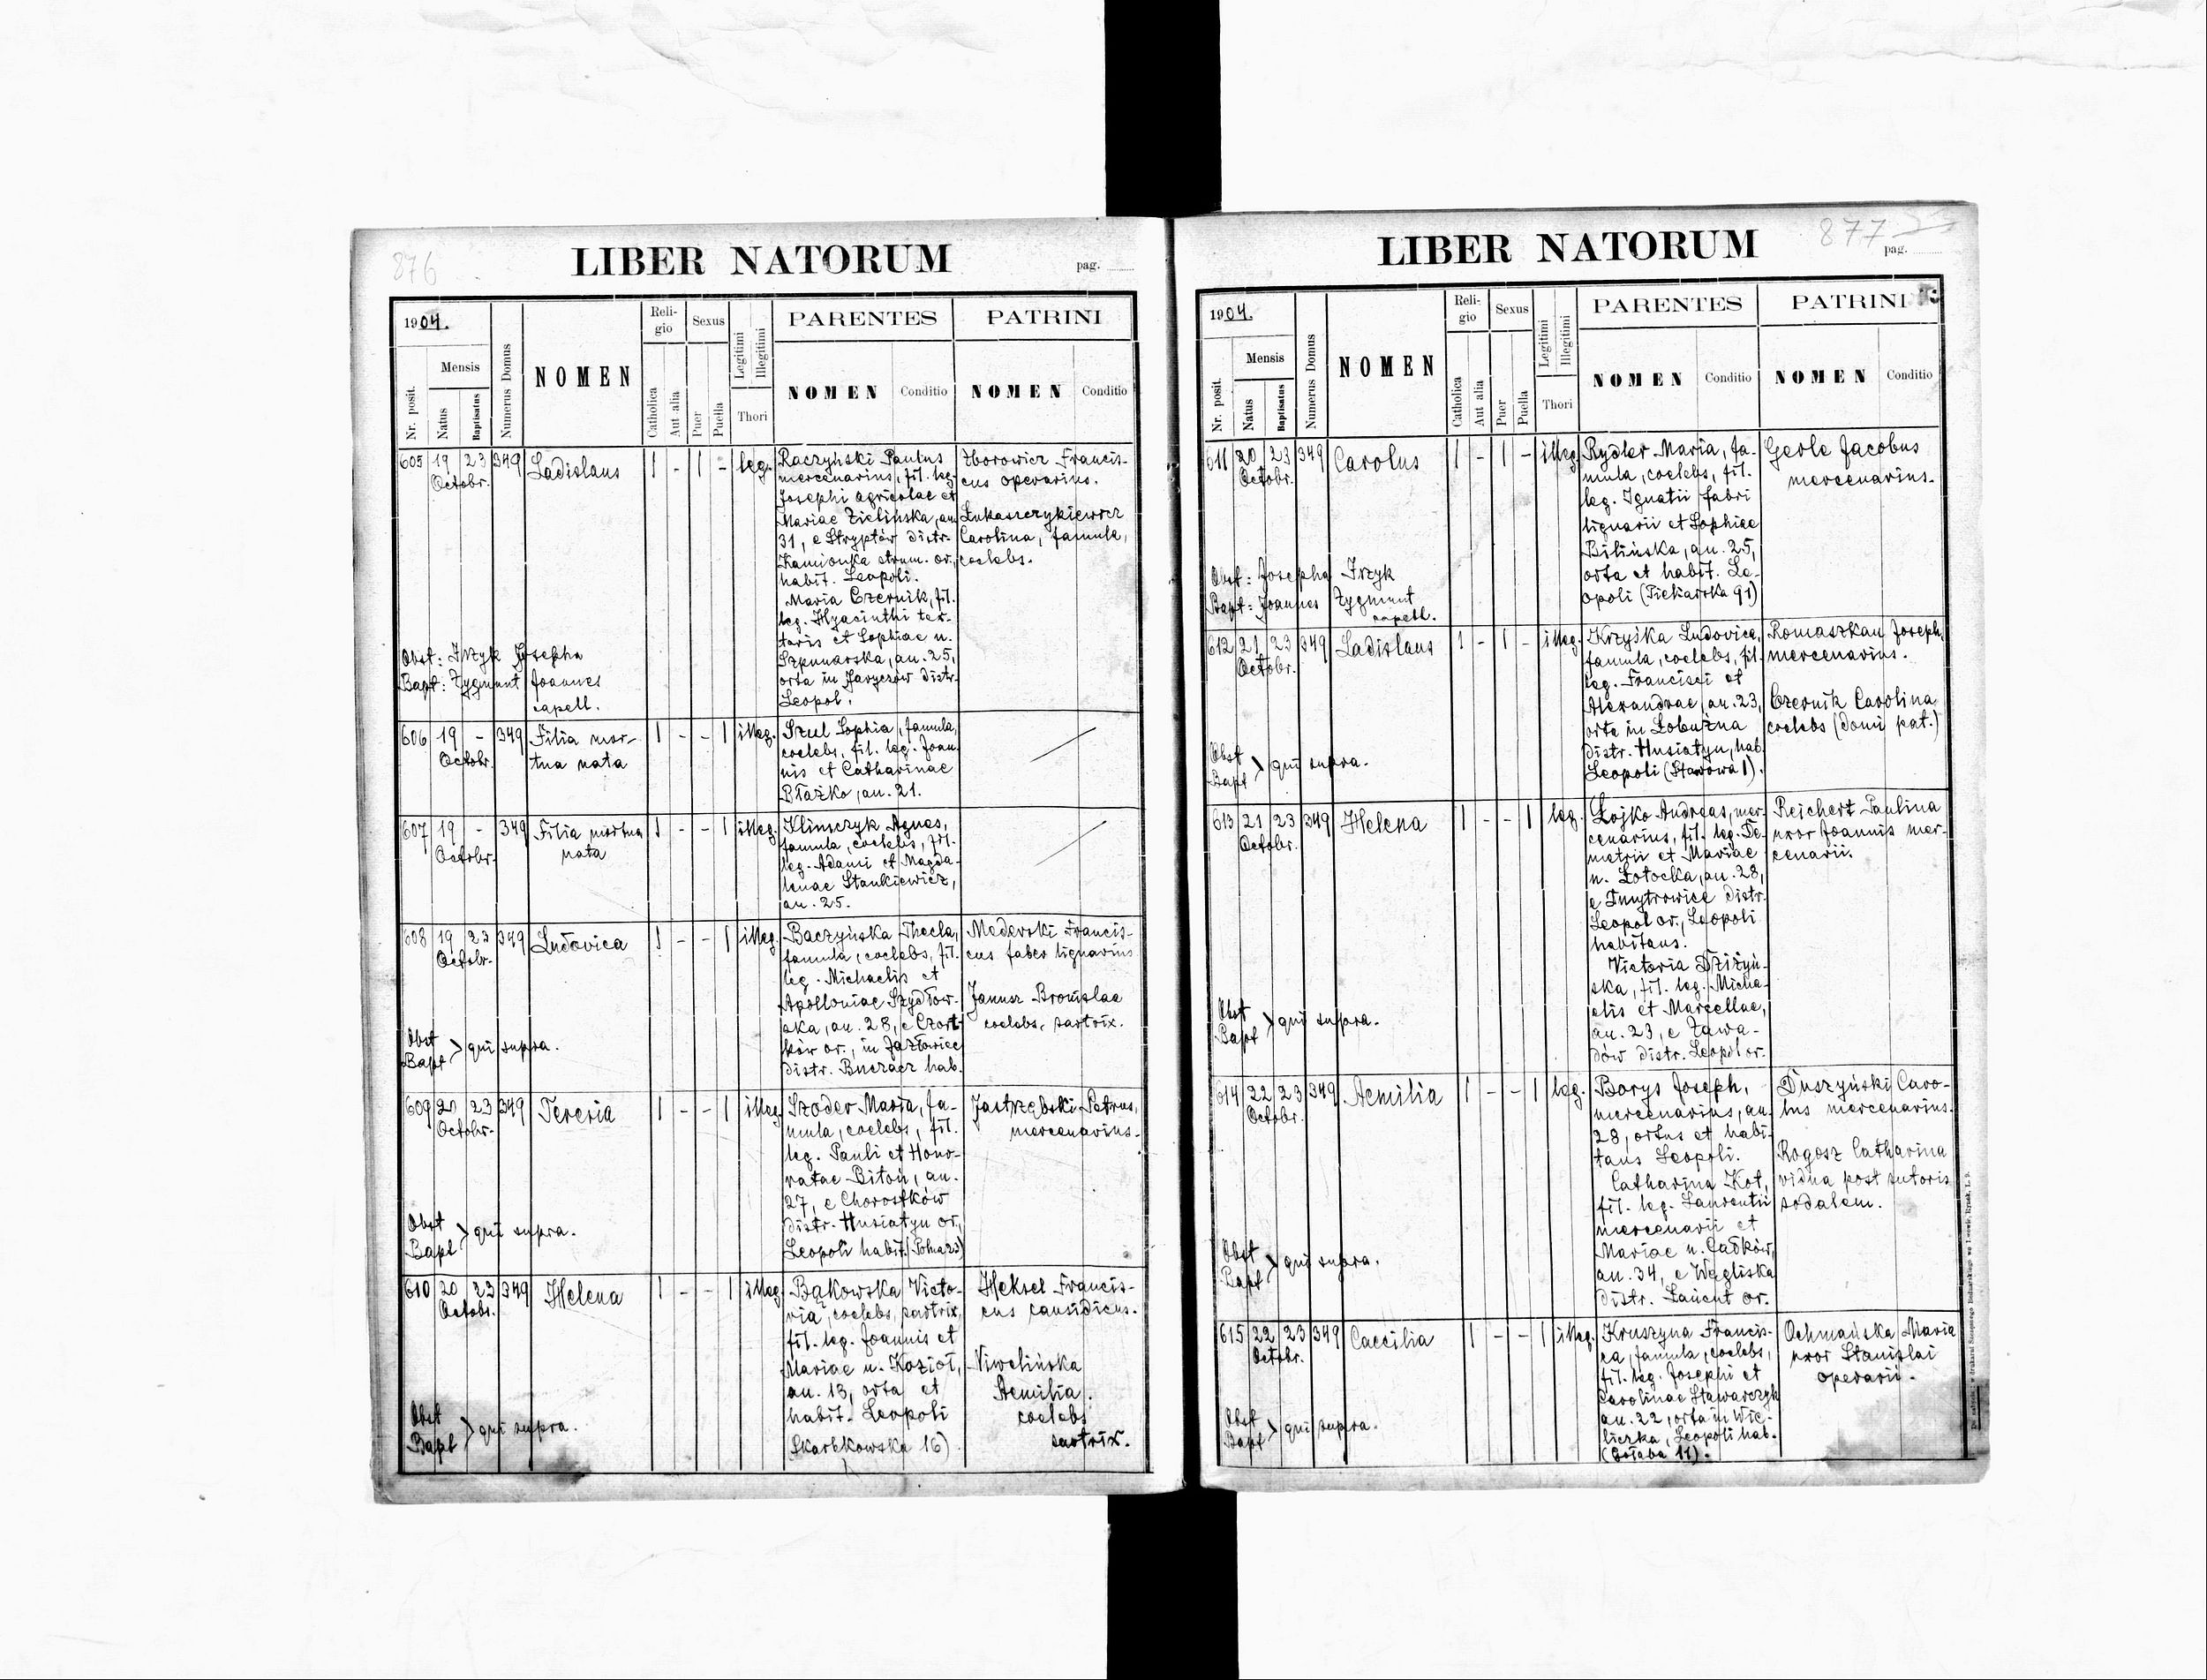 876
LIBER NATORUM
pag.
1904.
Mensis
Nr. posit.
Natus
Baptisatus
Numerus Domus
NOMEN
Reli-
gio
Catholica
Aut alia
Sexus
Puer
Puella
Legitimi
Illegitimi
Thori
PARENTES
NOMEN
Conditio
PATRINI
NOMEN
Conditio
605 19 23 349 Ladislaus 1 - 1 - leg.
Octobr.
Raczyński Paulus
mercenarius, fil. leg.
Josephi agricolae et
Mariae Zielińska, an.
31, e Stryptów distr.
Kamionka strum. or.,
habit. Leopoli.
Maria Czernik, fil.
leg. Hyacinthi tex-
toris et Sophiae n.
Szpunarska, an. 25,
orta in Jaryczów distr.
Leopol.
Zborowicz Francis-
cus operarius.
Łukaszczykiewicz
Carolina, famula,
coelebs.
Obst: Irzyk Josepha
Bapt: Zygmunt Joannes
capell.
606 19 - 349 Filia mor-
Octobr. tua nata
1 - - 1 illeg.
Szul Sophia, famula,
coelebs, fil. leg. Joan-
nis et Catharinae
Błażko, an. 21.
607 19 - 349 Filia mortua
Octobr. nata
1 - - 1 illeg.
Klimczyk Agnes,
famula, coelebs, fil.
leg. Adami et Magda-
lenae Stankiewicz,
an. 25.
608 19 23 349 Ludovica 1 - - 1 illeg.
Octobr.
Baczyńska Thecla,
famula, coelebs, fil.
leg. Michaelis et
Apolloniae Szydłow-
ska, an. 28, e Czort-
ków or., in Jazłowiec
distr. Buczacz hab.
Mederski Francis-
cus faber lignarius
Janusz Bronislaa
coelebs, sartrix.
Obst
Bapt > qui supra.
609 20 23 349 Teresia 1 - - 1 illeg
Octobr.
Szoder Maria, fa-
mula, coelebs, fil.
leg. Pauli et Hono-
ratae Bitoń, an.
27, e Chorostków
distr. Husiatyn or.,
Leopoli habit.
Jastrzębski Petrus,
mercenarius.
Obst
Bapt > qui supra.
610 20 23 349 Helena 1 - - 1 illeg
Octobr.
Bąkowska Victo-
ria, coelebs, sartrix,
fil. leg. Joannis et
Mariae n. Kozioł,
an. 18, orta et
habit. Leopoli
(Skarbkowska 16)
Heksel Francis-
cus causidicus.
Niwelińska
Aemilia
coelebs
sartrix.
Obst
Bapt > qui supra.
877
LIBER NATORUM
pag.
1904.
Mensis
Nr. posit.
Natus
Baptisatus
Numerus Domus
NOMEN
Reli-
gio
Catholica
Aut alia
Sexus
Puer
Puella
Legitimi
Illegitimi
Thori
PARENTES
NOMEN
Conditio
PATRINI
NOMEN
Conditio
611 20 23 349 Carolus 1 - 1 - illeg
Octobr.
Rydler Maria, fa-
mula, coelebs, fil.
leg. Ignatii fabri
lignarii et Sophiae
Bilińska, an. 25,
orta et habit. Le-
opoli (Piekarska 91)
Gerle Jacobus
mercenarius.
Obst: Josepha Irzyk
Bapt: Joannes Zygmunt
capell.
612 21 23 349 Ladislaus 1 - 1 - illeg.
Octobr.
Krzyśka Ludovica,
famula, coelebs, fil.
leg. Francisci et
Alexandrae, an. 23,
orta in Łobużna
distr. Husiatyn, hab.
Leopoli (Stawowa 1).
Romaszkan Joseph,
mercenarius.
Czernik Carolina
coelebs (domi pat.)
Obst
Bapt > qui supra.
613 21 23 349 Helena 1 - - 1 leg.
Octobr.
Łojko Andreas, mer-
cenarius, fil. leg. De-
metrii et Mariae
n. Łotocka, an. 28,
e Dmytrowice distr.
Leopol or., Leopoli
habitans.
Victoria Dziżyń-
ska, fil. leg. Micha-
elis et Marcellae,
an. 23, e Zawa-
dów distr. Leopol or.
Reichert Paulina
uxor Joannis mer-
cenarii.
Obst
Bapt > qui supra.
614 22 23 349 Aemilia 1 - - 1 leg.
Octobr.
Borys Joseph,
mercenarius, an.
28, ortus et habi-
tans Leopoli.
Catharina Kot,
fil. leg. Laurentii
mercenarii et
Mariae n. Całków,
an. 34, e Węgliska
distr. Łańcut or.
Duszyński Caro-
lus mercenarius.
Rogosz Catharina
vidua post sutoris
sodalem.
Obst
Bapt > qui supra.
615 22 23 349 Caecilia 1 - - 1 illeg.
Octobr.
Kruszyna Francis-
ca, famula, coelebs,
fil. leg. Josephi et
Carolinae Stawarczyk
an. 22, orta in Wie-
liczka, Leopoli hab.
Ochmańska Maria
uxor Stanislai
operarii.
Obst
Bapt > qui supra.